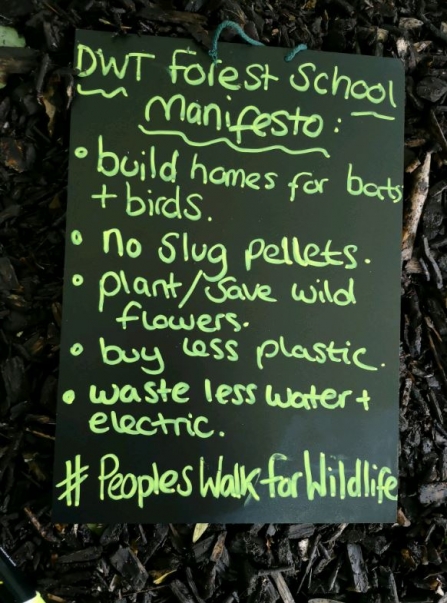 DWT Forest School
Manifesto:
• build homes for bats
+ birds.
• no slug pellets.
• plant/save wild
flowers.
• buy less plastic.
• waste less water +
electric.
# PeoplesWalkforWildlife